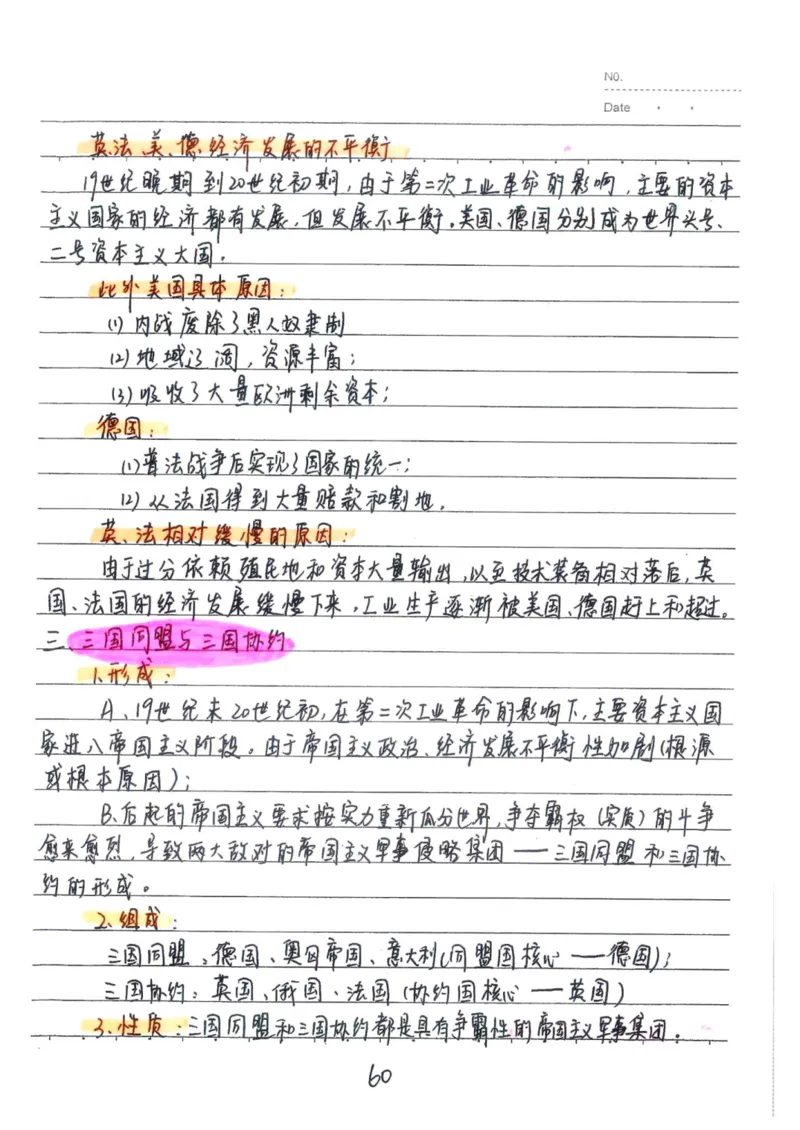 No.
Date
英、法、美、德经济发展的不平衡
19世纪晚期到20世纪初期,由于第二次工业革命的影响,主要的资本
主义国家的经济都有发展,但发展不平衡。美国、德国分别成为世界头号、
二号资本主义大国。
此外美国具体原因:
(1)内战废除了黑人奴隶制
(2)地域辽阔,资源丰富;
(3)吸收了大量欧洲剩余资本;
德国:
(1)普法战争后实现了国家的统一;
(2)从法国得到大量赔款和割地。
英、法相对缓慢的原因:
由于过分依赖殖民地和资本大量输出,以至技术装备相对落后,英
国、法国的经济发展缓慢下来,工业生产逐渐被美国、德国赶上和超过。
三、三国同盟与三国协约
1.形成:
A、19世纪末20世纪初,在第二次工业革命的影响下,主要资本主义国
家进入帝国主义阶段。由于帝国主义政治、经济发展不平衡性加剧(根源
或根本原因);
B.后起的帝国主义要求按实力重新瓜分世界,争夺霸权(实质)的斗争
愈来愈烈,导致两大敌对的帝国主义军事侵略集团——三国同盟和三国协
约的形成。
2、组成:
三国同盟:德国、奥匈帝国、意大利(同盟国核心——德国);
三国协约:英国、俄国、法国(协约国核心——英国)
3.性质:三国同盟和三国协约都是具有争霸性的帝国主义军事集团。
60